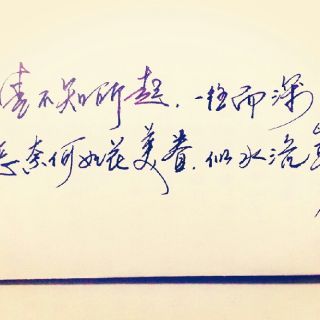 情不知所起,一往而深
恶奈何如花美眷,似水流